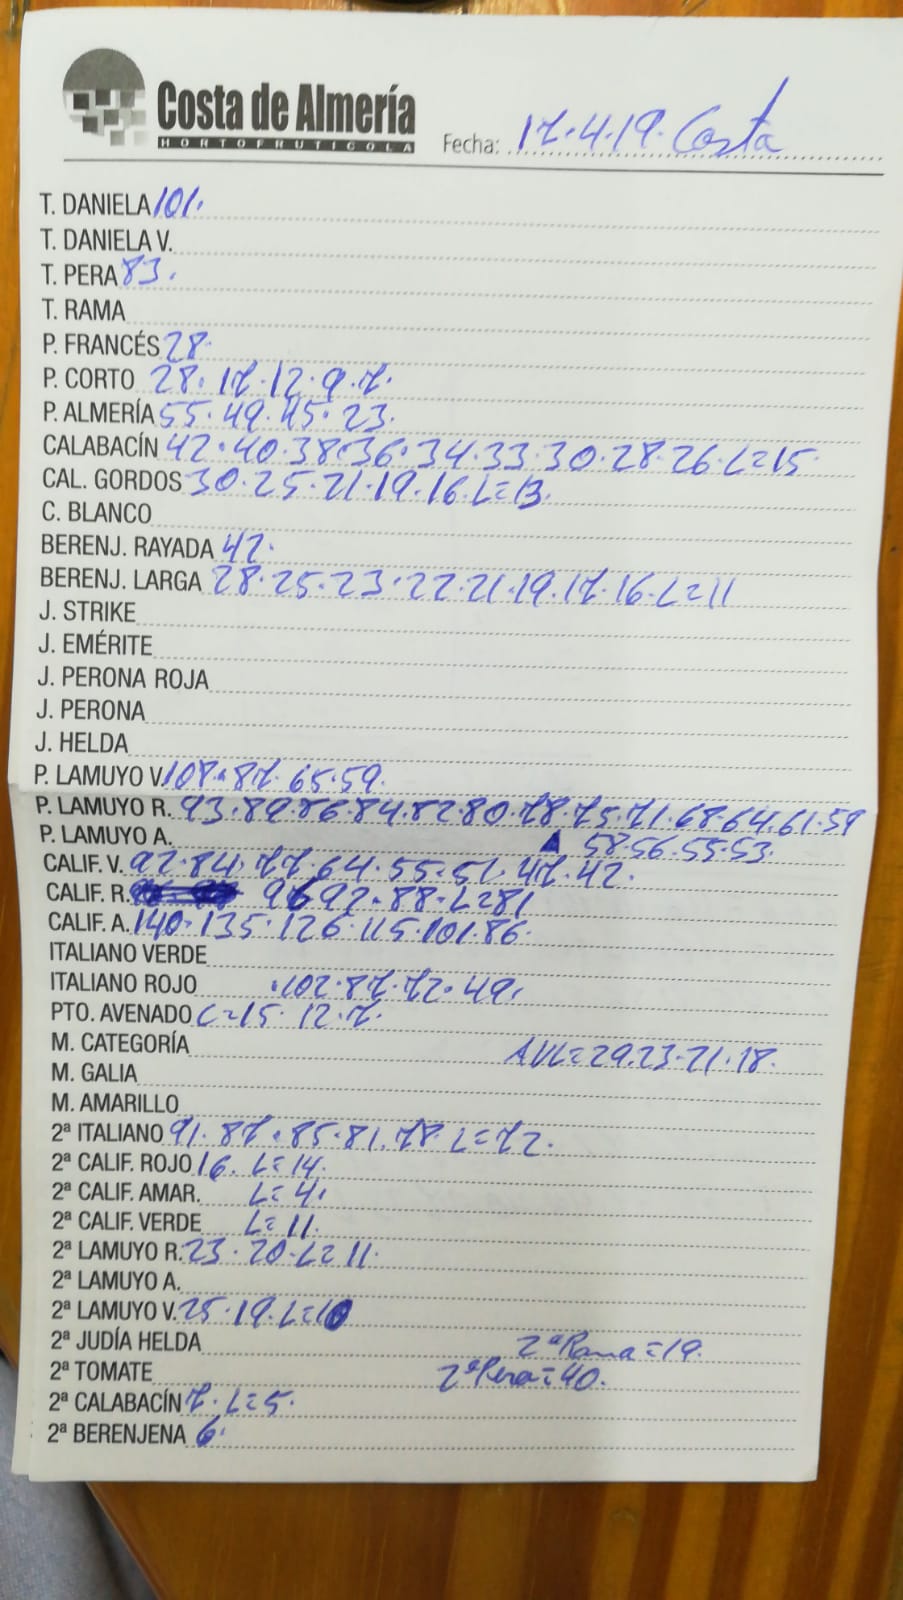 Costa de Almería
HORTOFRUTICOLA
Fecha: 17.4.19. Costa
T. DANIELA 101.
T. DANIELA V.
T. PERA 83.
T. RAMA
P. FRANCÉS 28.
P. CORTO 28. 17. 12. 9. 7.
P. ALMERÍA 55. 49. 45. 23.
CALABACÍN 42. 40. 38. 36. 34. 33. 30. 28. 26. L=15.
CAL. GORDOS 30. 25. 21. 19. 16. L=13.
C. BLANCO
BERENJ. RAYADA 42.
BERENJ. LARGA 28. 25. 23. 22. 21. 19. 17. 16. L=11
J. STRIKE
J. EMÉRITE
J. PERONA ROJA
J. PERONA
J. HELDA
P. LAMUYO V. 108. 87. 65. 59.
P. LAMUYO R. 93. 89. 86. 84. 82. 80. 78. 75. 71. 68. 64. 61. 59
P. LAMUYO A. 58. 56. 55. 53.
CALIF. V. 92. 84. 77. 64. 55. 51. 47. 42.
CALIF. R. 96 92. 88. L=81
CALIF. A. 140. 135. 126. 115. 101. 86.
ITALIANO VERDE
ITALIANO ROJO .102. 87. 72. 49.
PTO. AVENADO C=15. 12. 7.
M. CATEGORÍA AVL=29. 23. 21. 18.
M. GALIA
M. AMARILLO
2ª ITALIANO 91. 87. 85. 81. 78. L=72.
2ª CALIF. ROJO 16. L=14.
2ª CALIF. AMAR. L=4.
2ª CALIF. VERDE L=11.
2ª LAMUYO R. 23. 20. L=11.
2ª LAMUYO A.
2ª LAMUYO V. 25. 19. L=10
2ª JUDÍA HELDA 2ª Rama=19.
2ª TOMATE 2ª Pera=40.
2ª CALABACÍN 7. L=5.
2ª BERENJENA 6.